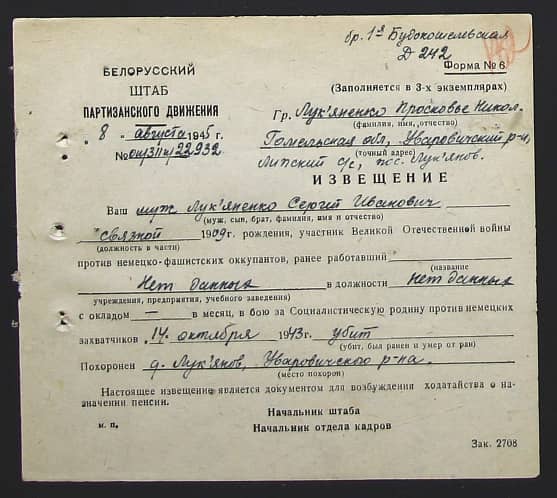 бр. 1я Будокошелевская
Д 242
Форма № 6
БЕЛОРУССКИЙ
ШТАБ
ПАРТИЗАНСКОГО ДВИЖЕНИЯ
„ 8 „ августа 1945 г.
№ 22932
(Заполняется в 3-х экземплярах)
Гр. Лук'яненко Просковье Никол.
(фамилия, имя, отчество)
Гомельская обл, Уваровичский р-н,
(точный адрес)
Липский с/с, пос. Лук'янов.
ИЗВЕЩЕНИЕ
Ваш муж Лук'яненко Сергей Иванович
(муж, сын, брат, фамилия, имя и отчество)
связной 1909 г. рождения, участник Великой Отечественной войны
(должность в части)
против немецко-фашистских оккупантов, ранее работавший
(название
Нет данных в должности нет данных
учреждения, предприятия, учебного заведения)
с окладом — в месяц, в бою за Социалистическую родину против немецких
захватчиков 14 октября 1943 г. убит
(убит, был ранен и умер от ран)
Похоронен д. Лук'янов, Уваровичского р-на.
(место похорон)
Настоящее извещение является документом для возбуждения ходатайства о на-
значении пенсии.
Начальник штаба
м. п.
Начальник отдела кадров
Зак. 2708